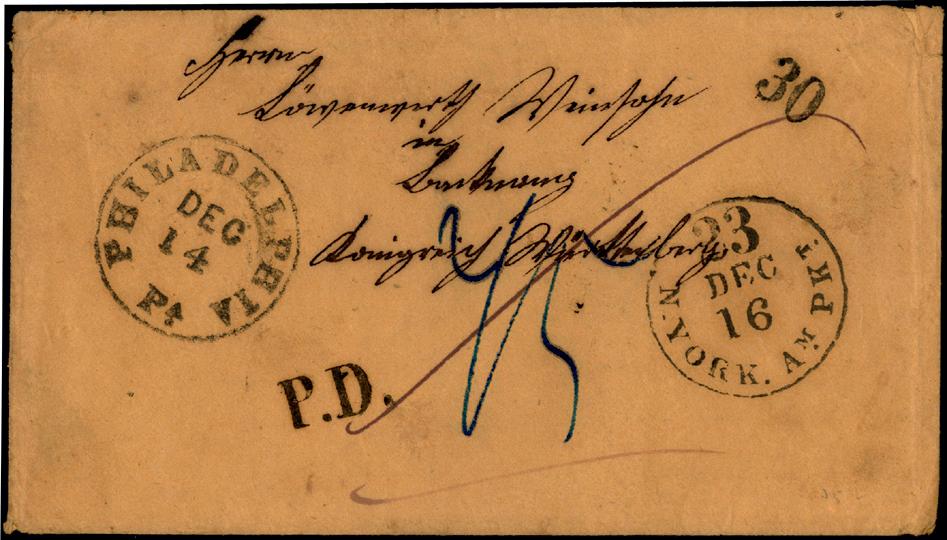 Herrn
Löwenwirth Weinsohn
in
Backnang
Königreich Württemberg
30
PHILADELPHIA Pa.
DEC
14
23
DEC
16
N. YORK. AM PKT.
P.D.